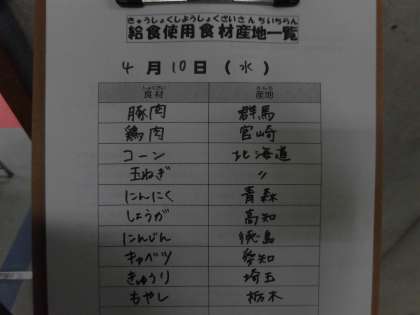 きゅうしょくしようしょくざいさんちいちらん
給食使用食材産地一覧
4月10日(水)
しょくざい さんち
食材 産地
豚肉 群馬
鶏肉 宮崎
コーン 北海道
玉ねぎ 〃
にんにく 青森
しょうが 高知
にんじん 徳島
キャベツ 愛知
きゅうり 埼玉
もやし 栃木